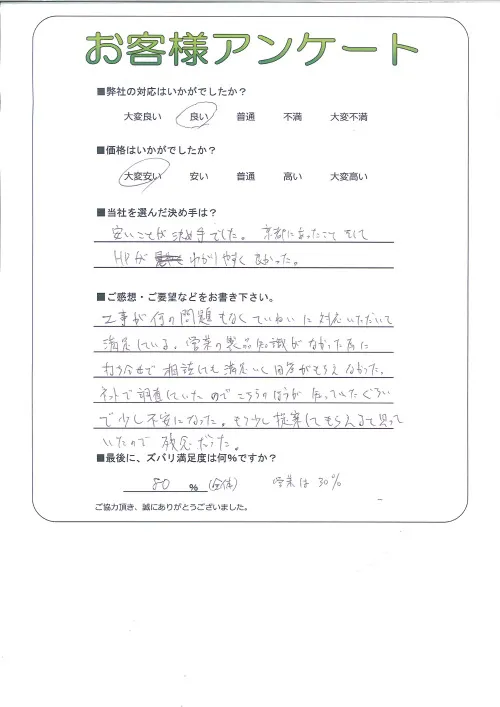 お客様アンケート
■弊社の対応はいかがでしたか？
大変良い 良い 普通 不満 大変不満
■価格はいかがでしたか？
大変安い 安い 普通 高い 大変高い
■当社を選んだ決め手は？
安いことが決め手でした。京都にあったこと そして
HPが わかりやすく良かった。
■ご感想・ご要望などをお書き下さい。
工事が何の問題もなくていねいに対応いただいて
満足している。営業の製品知識がなかった為に
打ち合せで相談しても満足いく回答がもらえなかった。
ネットで調査していたのでこちらのほうが知っていたぐらい
で少し不安になった。もう少し提案してもらえると思って
いたので残念だった。
■最後に、ズバリ満足度は何%ですか？
80 %(全体) 営業は30%
ご協力頂き、誠にありがとうございました。